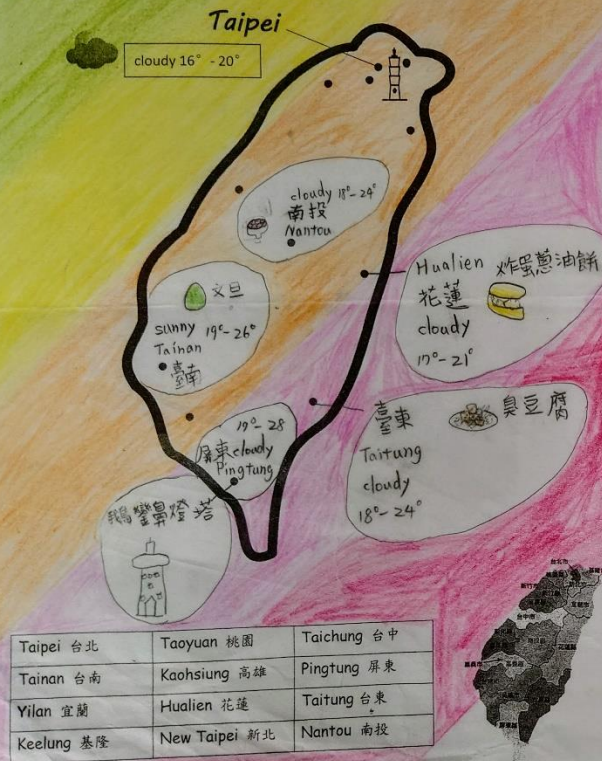 Taipei
cloudy 16° - 20°
cloudy 18°-24°
南投
Nantou
文旦
sunny 19°-26°
Tainan
臺南
Hualien 炸蛋蔥油餅
花蓮
cloudy
17°-21°
19°-28
屏東 cloudy
Pingtung
臺東 臭豆腐
Taitung
cloudy
18°-24°
鵝鑾鼻燈塔
Taipei 台北 Taoyuan 桃園 Taichung 台中
Tainan 台南 Kaohsiung 高雄 Pingtung 屏東
Yilan 宜蘭 Hualien 花蓮 Taitung 台東
Keelung 基隆 New Taipei 新北 Nantou 南投
台北市